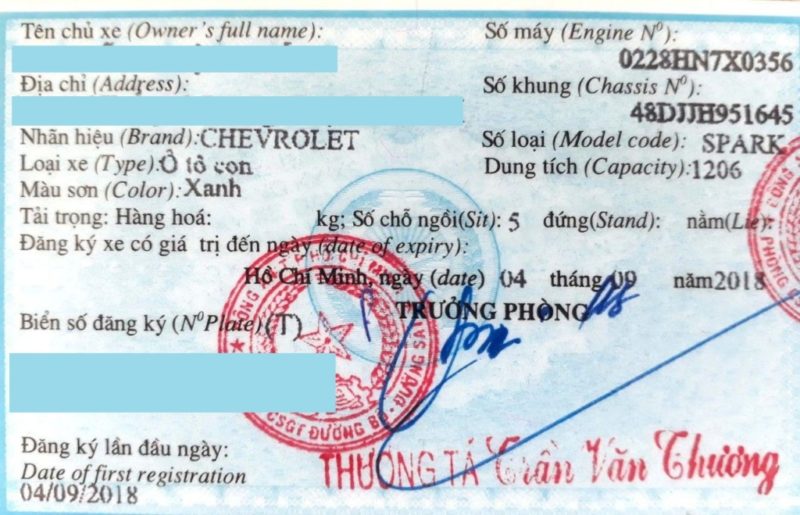 Tên chủ xe (Owner's full name):
Số máy (Engine Nº):
0228HN7X0356
Địa chỉ (Address):
Số khung (Chassis Nº):
48DJJH951645
Nhãn hiệu (Brand): CHEVROLET
Số loại (Model code): SPARK
Loại xe (Type): Ô tô con
Dung tích (Capacity): 1206
Màu sơn (Color): Xanh
Tải trọng: Hàng hoá: kg; Số chỗ ngồi(Sit): 5 đứng(Stand): nằm(Lie):
Đăng ký xe có giá trị đến ngày (date of expiry):
Hồ Chí Minh, ngày (date) 04 tháng 09 năm 2018
TRƯỞNG PHÒNG
Biển số đăng ký (NºPlate) (T)
CSGT ĐƯỜNG BỘ - ĐƯỜNG SẮT
Đăng ký lần đầu ngày:
Date of first registration
04/09/2018
THƯỢNG TÁ Trần Văn Thương